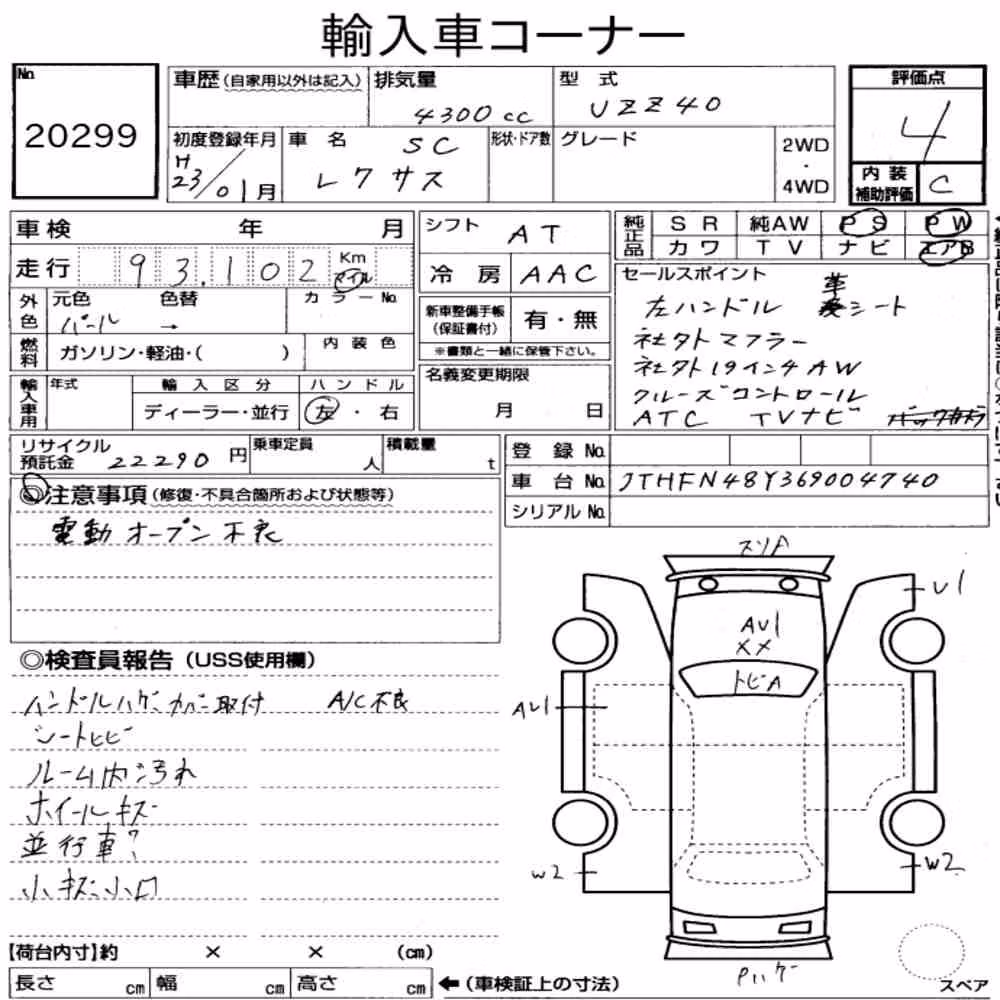 輸入車コーナー
No.
20299
車歴(自家用以外は記入)
排気量
4300cc
型 式
UZZ40
評価点
4
初度登録年月
H
23/01月
車 名
SC
レクサス
形状・ドア数
グレード
2WD
・
4WD
内 装
補助評価
C
車検 年 月
走行 93,102 Km マイル
シフト AT
冷 房 AAC
純正品
SR 純AW PS PW
カワ TV ナビ エアB
セールスポイント
左ハンドル 革シート
社外マフラー
社外19インチAW
クルーズコントロール
ATC TVナビ バックカメラ
外色
元色 色替
パール →
カラーNo.
新車整備手帳
(保証書付)
有・無
※書類と一緒に保管下さい。
燃料
ガソリン・軽油・( )
内 装 色
名義変更期限
月 日
輸入車用
年式
輸 入 区 分
ディーラー・並行
ハ ン ド ル
左 ・ 右
リサイクル
預託金 22290 円
乗車定員
人
積載量
t
登 録 No.
車 台 No. JTHFN48Y369004740
シリアル No.
◎注意事項(修復・不具合箇所および状態等)
電動オープン不良
◎検査員報告(USS使用欄)
ハンドルハゲ、カバー取付 A/C不良
シートヒビ
ルーム内汚れ
ホイールキズ
並行車?
小キズ、小凹
スリA
U1
AU1
××
トビA
AU1
W2
W2
Pハゲ
スペア
【荷台内寸】約 × × (cm)
長さ cm 幅 cm 高さ cm ←(車検証上の寸法)